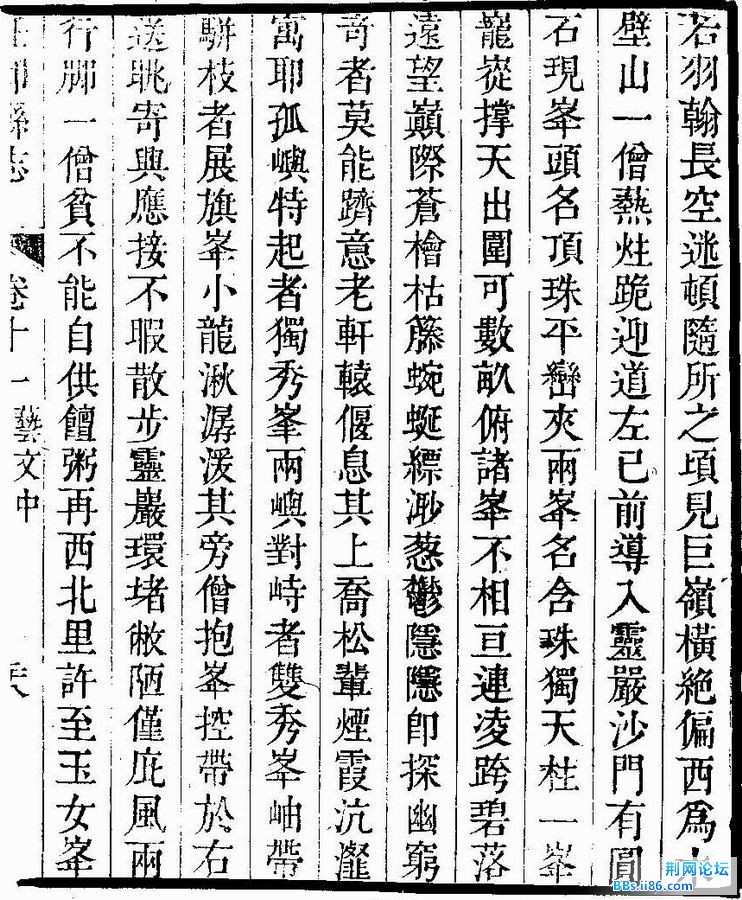 若羽翰長空逃頓隨所之頃見巨嶺橫絶偏西爲
壁山一僧熱炷跪迎道左已前導入靈嚴沙門有圓
石現峯頭名頂珠平巒夾兩峯名含珠獨天柱一峯
巃嵸撑天出圍可數畝俯諸峯不相亘連凌跨碧落
遠望巔際蒼檜枯籐蜿蜒縹渺葱鬱隱隱卽探幽窮
竒者莫能躋意老軒轅偃息其上喬松輩煙霞沆瀣
寓耶孤嶼特起者獨秀峯兩嶼對峙者雙秀峯岫帶
駢枝者展旗峯小龍湫潺湲其旁僧抱峯控帶於右
送眺寄興應接不暇散步靈巖環堵敝陋僅庇風雨
行脚一僧貧不能自供饘粥再西北里許至玉女峯
縣志 卷十一 藝文中
荆网论坛
BBs.ii86.com